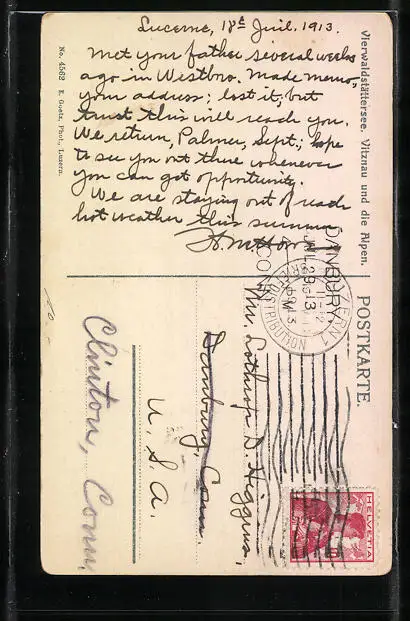 Lucerne, 18t Juil. 1913.
Met your father several weeks
ago in Westbro. Made memo,
your address; lost it, but
trust this will reach you.
We return, Palmer, Sept.; hope
to see you out there whenever
you can get opportunity.
We are staying out of reach
hot weather this summer
Vierwaldstättersee. Vitznau und die Alpen.
No. 4562 E. Goetz, Phot., Luzern.
POSTKARTE.
DANBURY
CONN.
LUZERN 1
DISTRIBUTION
HELVETIA
Mr. Lothrop D. Higgins,
Danbury, Conn
U. S. A.
Clinton, Conn.